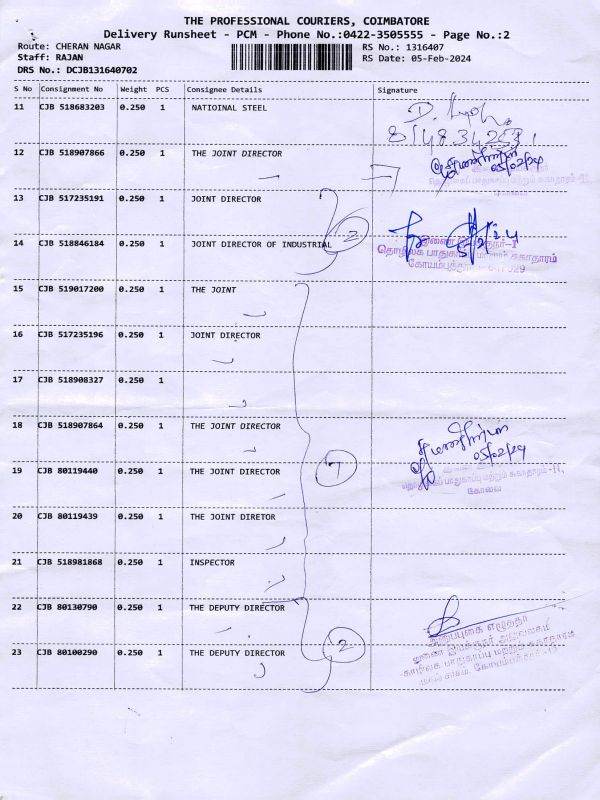 THE PROFESSIONAL COURIERS, COIMBATORE
Delivery Runsheet - PCM - Phone No.:0422-3505555 - Page No.:2
Route: CHERAN NAGAR RS No.: 1316407
Staff: RAJAN RS Date: 05-Feb-2024
DRS No.: DCJB131640702
S No Consignment No Weight PCS Consignee Details Signature
11 CJB 518683203 0.250 1 NATIOINAL STEEL
12 CJB 518907866 0.250 1 THE JOINT DIRECTOR
05/02/24
தொழிலக பாதுகாப்பு மற்றும் சுகாதாரம்-II,
13 CJB 517235191 0.250 1 JOINT DIRECTOR
2
14 CJB 518846184 0.250 1 JOINT DIRECTOR OF INDUSTRIAL
தொழிலக பாதுகாப்பு மற்றும் சுகாதாரம்
15 CJB 519017200 0.250 1 THE JOINT
16 CJB 517235196 0.250 1 JOINT DIRECTOR
17 CJB 518908327 0.250 1
18 CJB 518907864 0.250 1 THE JOINT DIRECTOR
05/02/24
7
19 CJB 80119440 0.250 1 THE JOINT DIRECTOR
தொழிலக பாதுகாப்பு மற்றும் சுகாதாரம்-II,
கோவை
20 CJB 80119439 0.250 1 THE JOINT DIRETOR
21 CJB 518981868 0.250 1 INSPECTOR
22 CJB 80130790 0.250 1 THE DEPUTY DIRECTOR
2
23 CJB 80100290 0.250 1 THE DEPUTY DIRECTOR